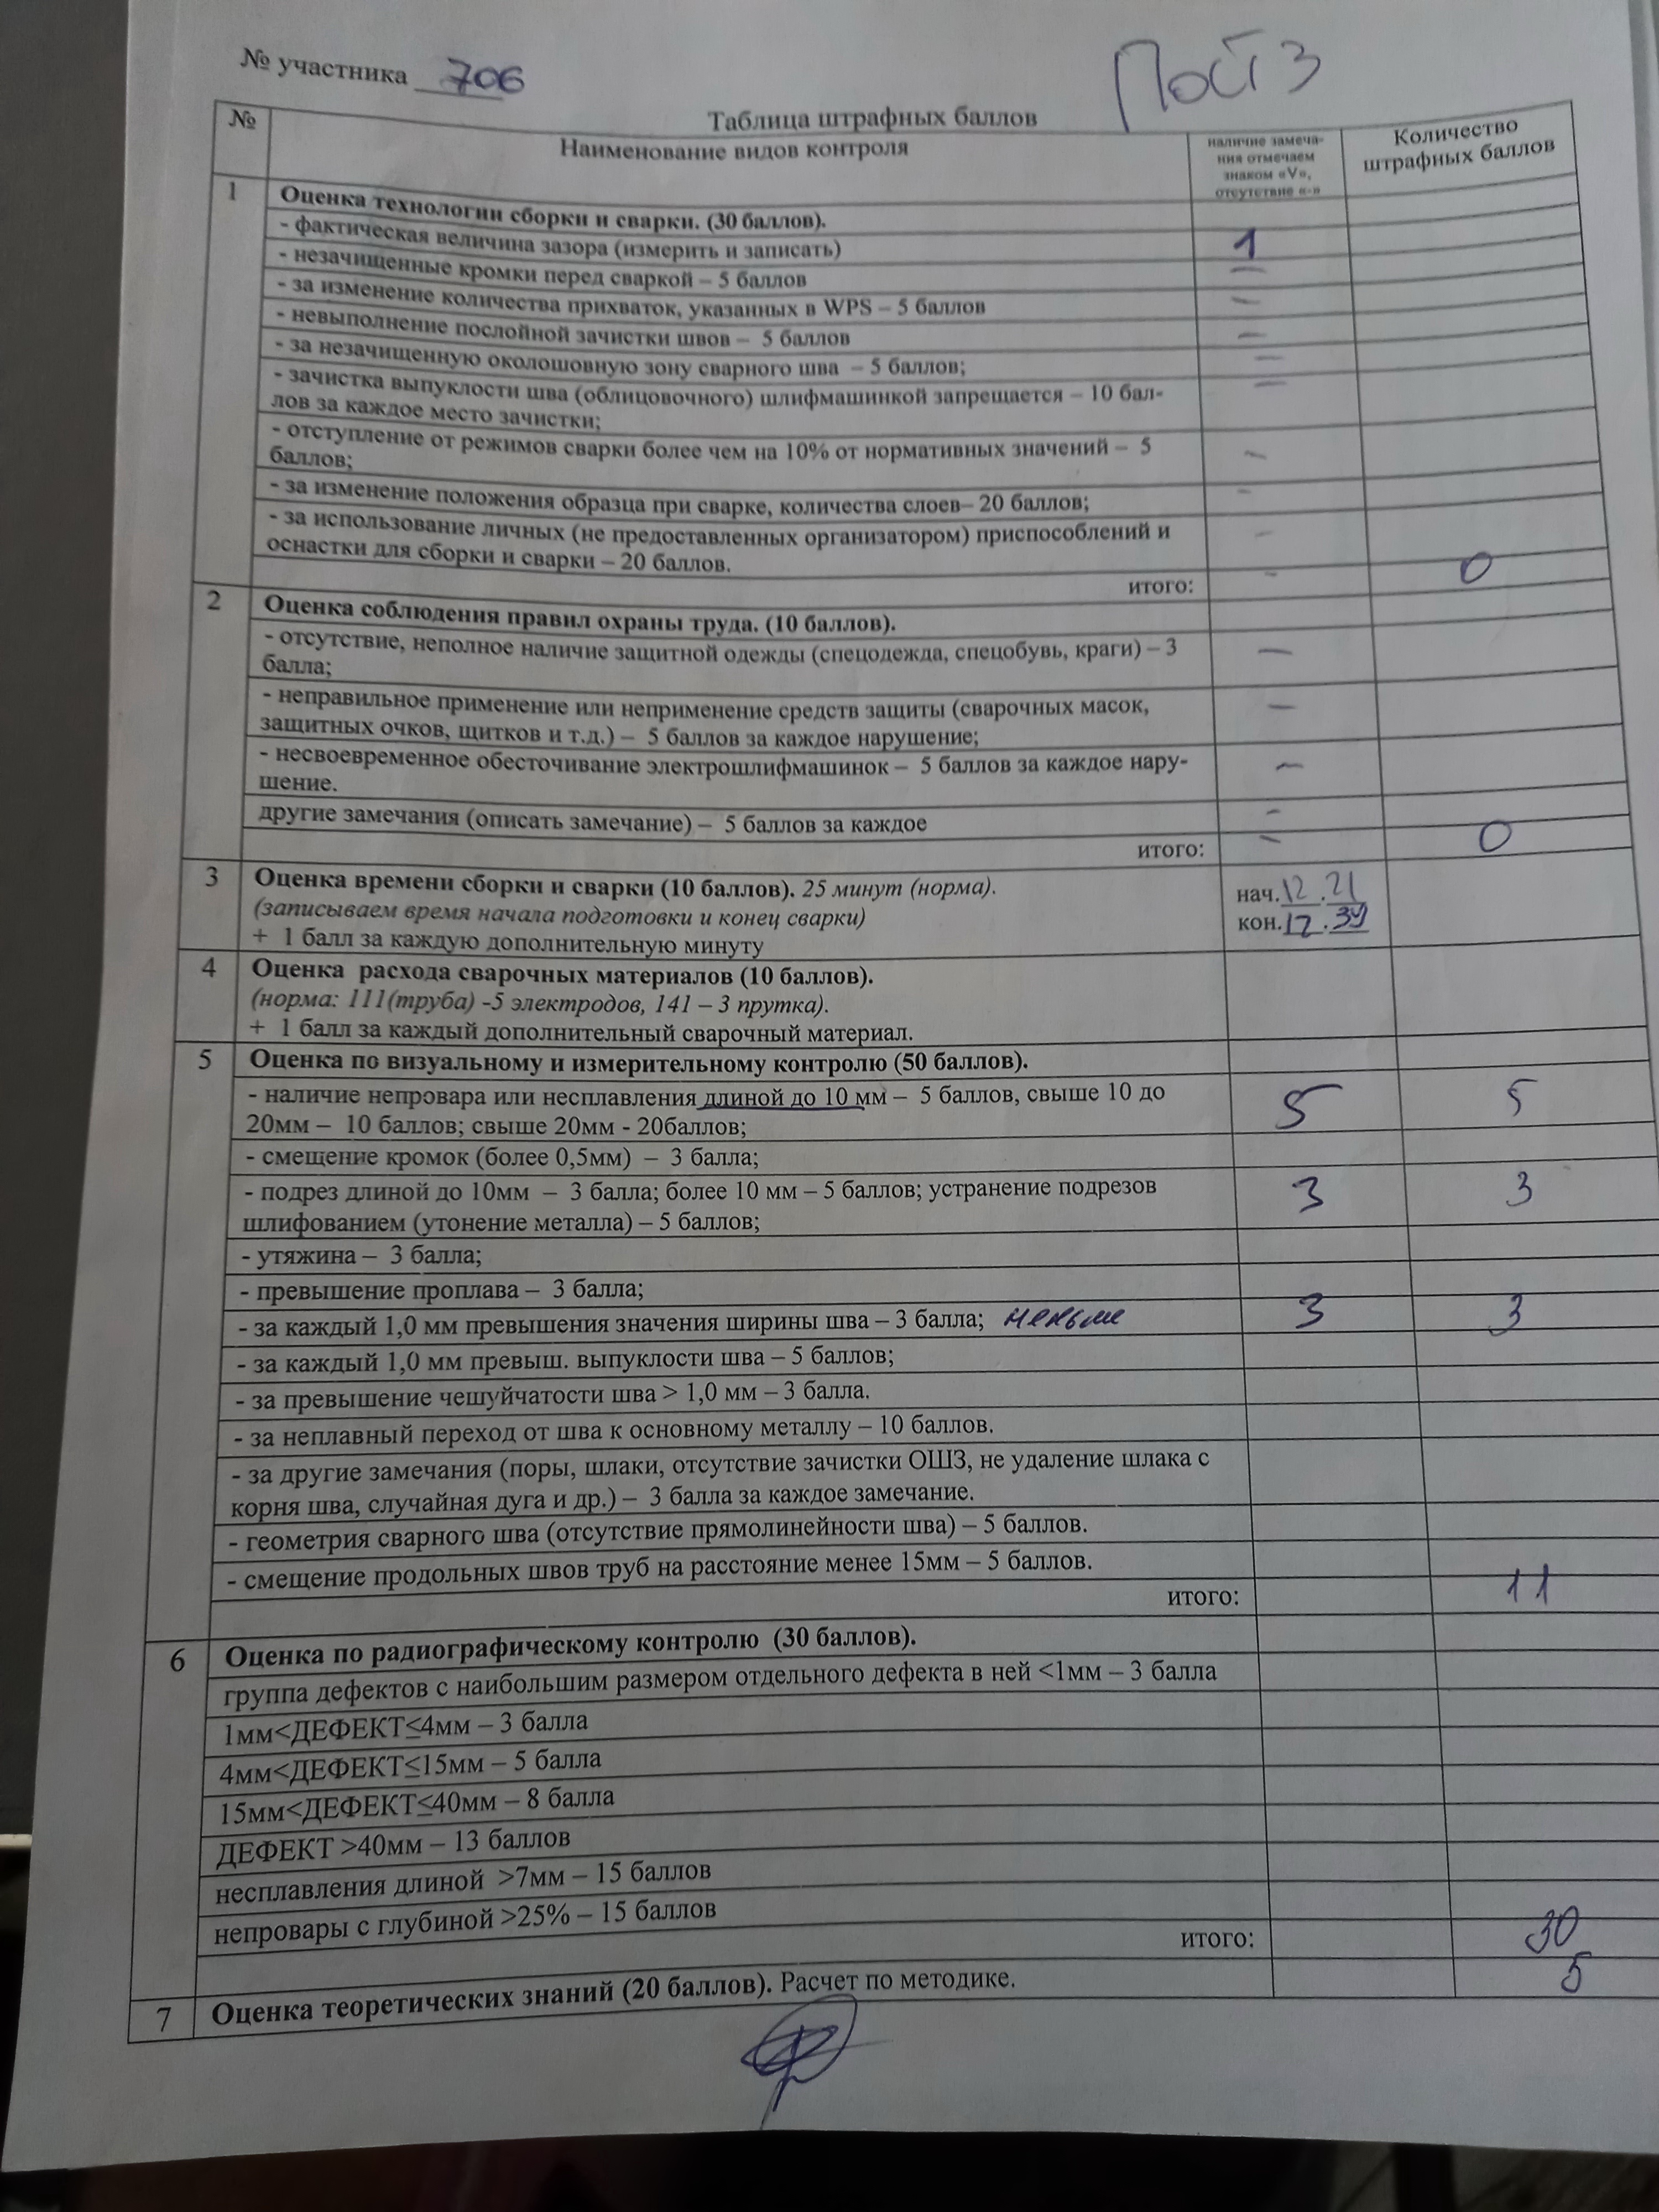 № участника 706
Пост 3
Таблица штрафных баллов
№
Наименование видов контроля
наличие замеча-
ния отмечаем
знаком «V»,
отсутствие «-»
Количество
штрафных баллов
1
Оценка технологии сборки и сварки. (30 баллов).
- фактическая величина зазора (измерить и записать)
1
- незачищенные кромки перед сваркой – 5 баллов
–
- за изменение количества прихваток, указанных в WPS – 5 баллов
–
- невыполнение послойной зачистки швов – 5 баллов
–
- за незачищенную околошовную зону сварного шва – 5 баллов;
–
- зачистка выпуклости шва (облицовочного) шлифмашинкой запрещается – 10 бал-
лов за каждое место зачистки;
–
- отступление от режимов сварки более чем на 10% от нормативных значений – 5
баллов;
–
- за изменение положения образца при сварке, количества слоев– 20 баллов;
–
- за использование личных (не предоставленных организатором) приспособлений и
оснастки для сборки и сварки – 20 баллов.
–
итого:
–
0
2
Оценка соблюдения правил охраны труда. (10 баллов).
- отсутствие, неполное наличие защитной одежды (спецодежда, спецобувь, краги) – 3
балла;
–
- неправильное применение или неприменение средств защиты (сварочных масок,
защитных очков, щитков и т.д.) – 5 баллов за каждое нарушение;
–
- несвоевременное обесточивание электрошлифмашинок – 5 баллов за каждое нару-
шение.
–
другие замечания (описать замечание) – 5 баллов за каждое
–
итого:
–
0
3
Оценка времени сборки и сварки (10 баллов). 25 минут (норма).
(записываем время начала подготовки и конец сварки)
+ 1 балл за каждую дополнительную минуту
нач. 12.21
кон. 12.39
4
Оценка расхода сварочных материалов (10 баллов).
(норма: 111(труба) -5 электродов, 141 – 3 прутка).
+ 1 балл за каждый дополнительный сварочный материал.
5
Оценка по визуальному и измерительному контролю (50 баллов).
- наличие непровара или несплавления длиной до 10 мм – 5 баллов, свыше 10 до
20мм – 10 баллов; свыше 20мм - 20баллов;
5
5
- смещение кромок (более 0,5мм) – 3 балла;
- подрез длиной до 10мм – 3 балла; более 10 мм – 5 баллов; устранение подрезов
шлифованием (утонение металла) – 5 баллов;
3
3
- утяжина – 3 балла;
- превышение проплава – 3 балла;
- за каждый 1,0 мм превышения значения ширины шва – 3 балла; меньше
3
3
- за каждый 1,0 мм превыш. выпуклости шва – 5 баллов;
- за превышение чешуйчатости шва > 1,0 мм – 3 балла.
- за неплавный переход от шва к основному металлу – 10 баллов.
- за другие замечания (поры, шлаки, отсутствие зачистки ОШЗ, не удаление шлака с
корня шва, случайная дуга и др.) – 3 балла за каждое замечание.
- геометрия сварного шва (отсутствие прямолинейности шва) – 5 баллов.
- смещение продольных швов труб на расстояние менее 15мм – 5 баллов.
итого:
11
6
Оценка по радиографическому контролю (30 баллов).
группа дефектов с наибольшим размером отдельного дефекта в ней <1мм – 3 балла
1мм<ДЕФЕКТ≤4мм – 3 балла
4мм<ДЕФЕКТ≤15мм – 5 балла
15мм<ДЕФЕКТ≤40мм – 8 балла
ДЕФЕКТ >40мм – 13 баллов
несплавления длиной >7мм – 15 баллов
непровары с глубиной >25% – 15 баллов
итого:
30
7
Оценка теоретических знаний (20 баллов). Расчет по методике.
5